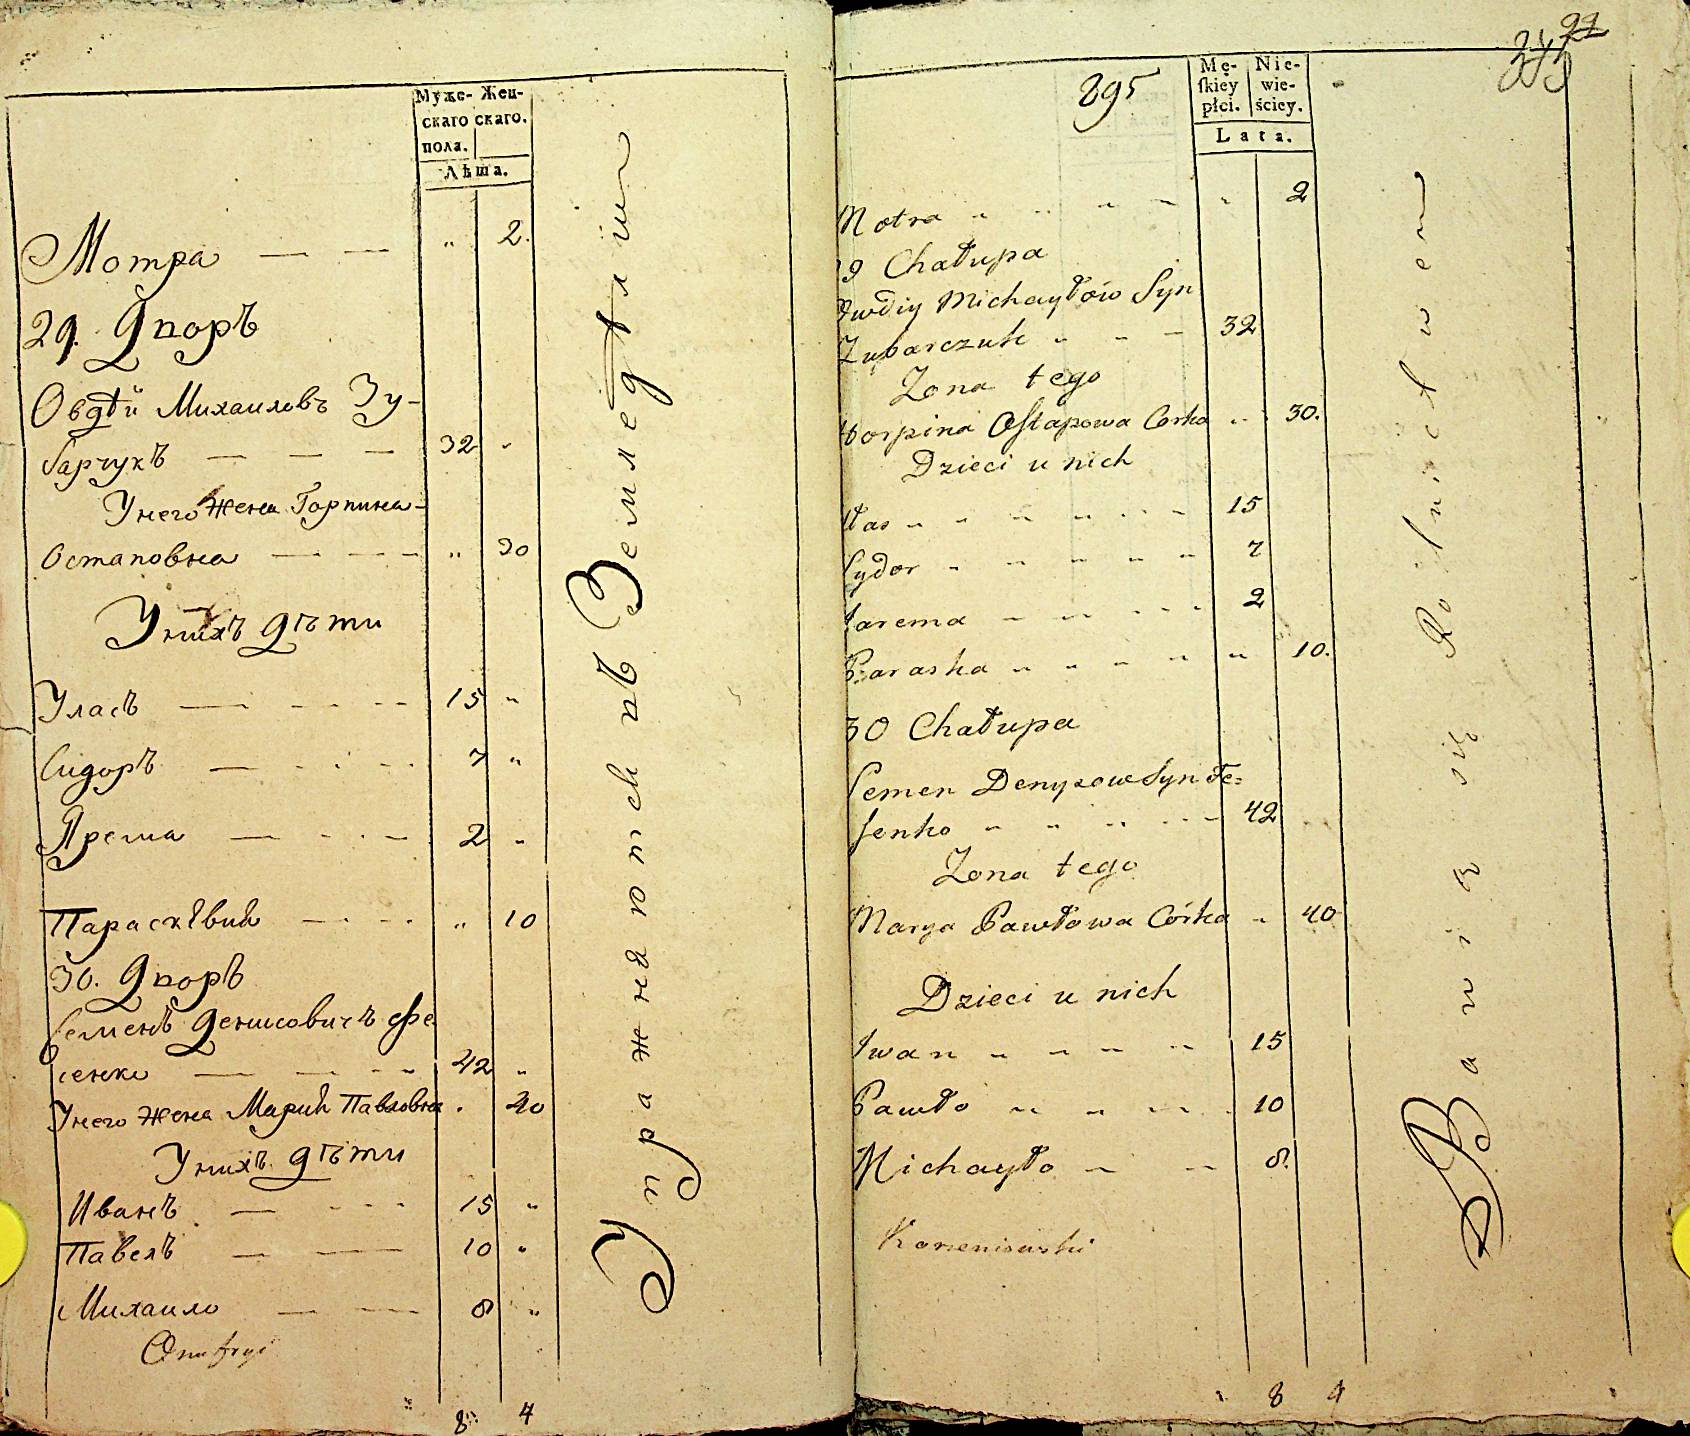 Мужс- Жен-
скаго скаго.
пола.
Лѣта.
Мотра — — " 2.
29. Дворъ
Овдѣй Михаиловъ Зу-
барчукъ — — — 32 "
У него жена Горпина
Остаповна — — — " 30
У нихъ дѣти
Уласъ — — — 15 "
Сидоръ — — — 7 "
Ярема — — — 2 "
Парасковия — — — " 10
30. Дворъ
Семенъ Денисовичъ Фе
сенко — — — 42 "
У него жена Мария Павловна . 40
У нихъ дѣти
Иванъ — — — 15 "
Павелъ — — — 10 "
Михаило — — — 8 "
Onufryi
8 4
Упражняются въ Земледѣлии
295
Mę- Nie-
skiey wie-
płci. ściey.
Lata.
Motra " " " " " 2
29 Chałupa
Owdiy Michayłów Syn
Zubarczuk " " " 32
Zona tego
Horpina Ostapowa Corka " 30.
Dzieci u nich
Ułas " " " " " 15
Sydor " " " " " 7
Jarema " " " " 2
Paraska " " " " " 10.
30 Chałupa
Semen Denysow Syn Fe=
senko " " " " 42
Zona tego
Marya Pawłowa Córka " 40
Dzieci u nich
Iwan " " " " 15
Pawło " " " " 10
Michayło " " 8.
Korzeniowski
8 4
Bawią się Rolnictwem